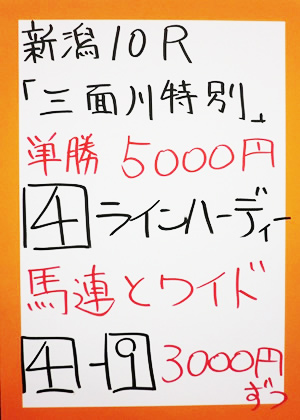 新潟10R
「三面川特別」
単勝 5000円
4 ラインハーディー
馬連とワイド
4-9 3000円
ずつ